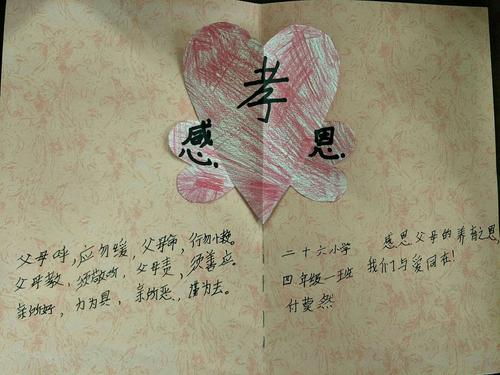 孝
感
恩
父母呼,应勿缓,父母命,行勿懒。
父母教,须敬听,父母责,须善应。
亲所好,力为具,亲所恶,谨为去。
感恩父母的养育之恩,
我们与爱同在!
二十六小学
四年级一班
付蓂然